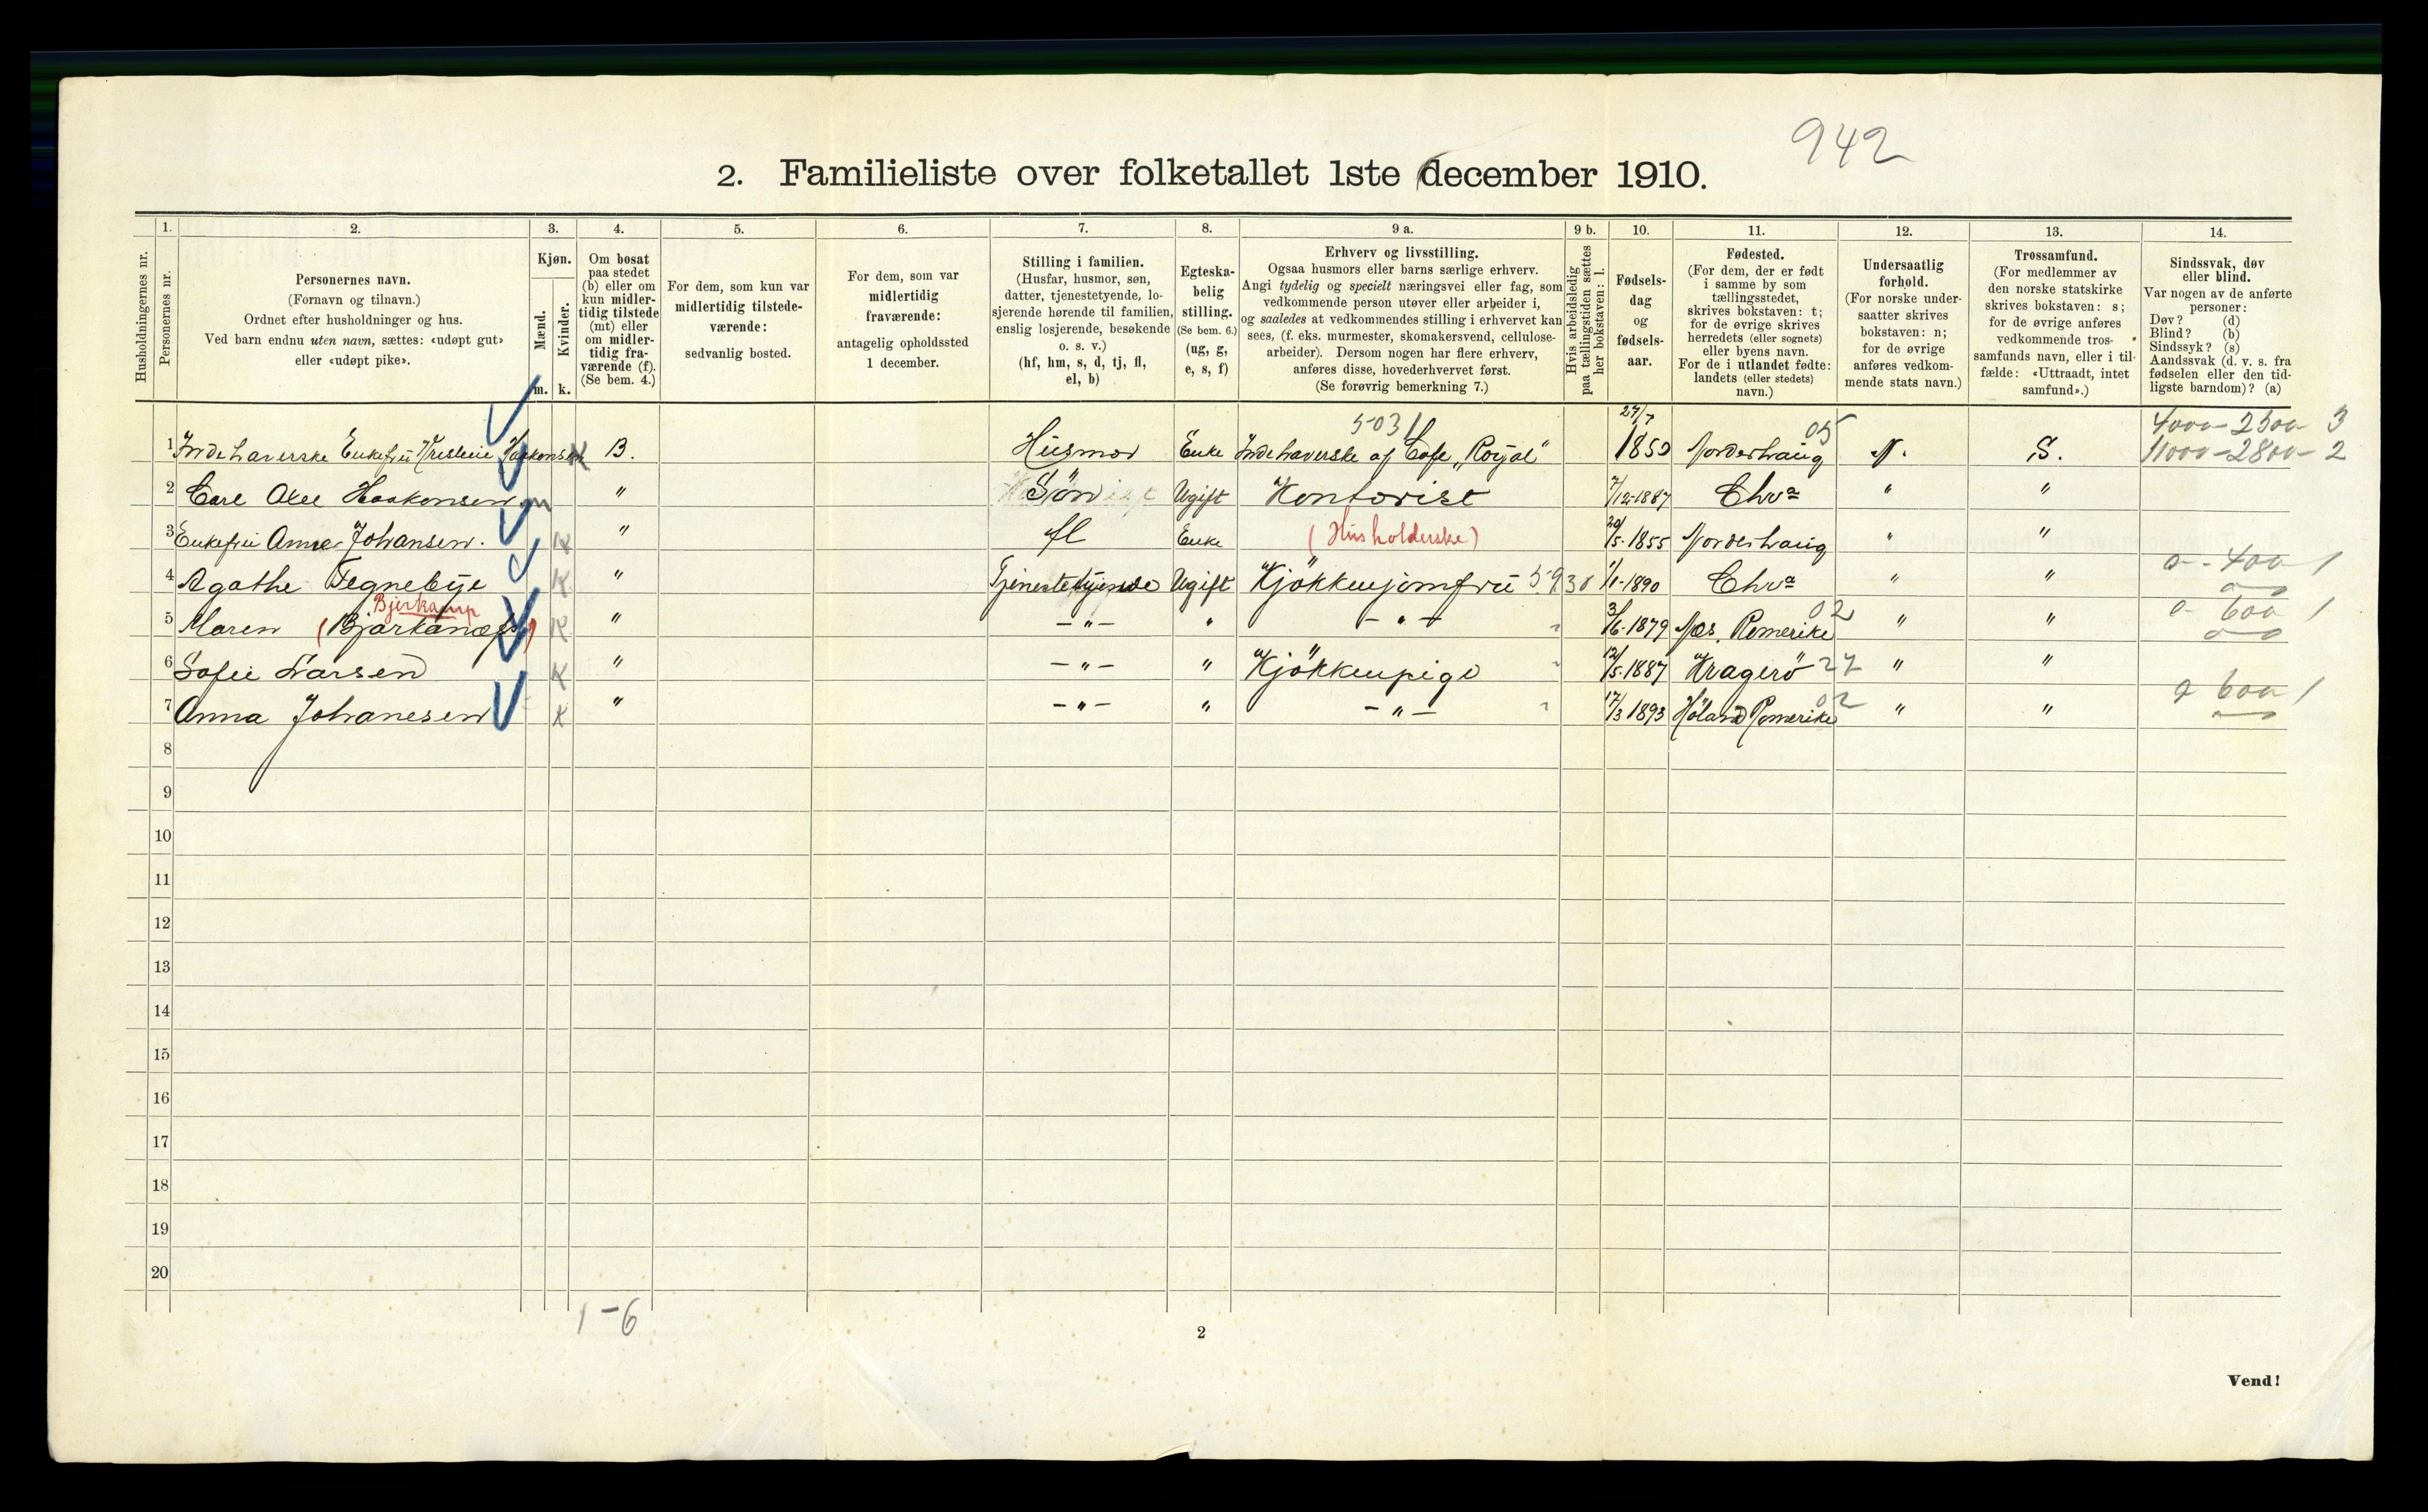 942
2. Familieliste over folketallet 1ste december 1910.
Husholdningernes nr.
1. Personernes nr.
2. Personernes navn.
(Fornavn og tilnavn.)
Ordnet efter husholdninger og hus.
Ved barn endnu uten navn, sættes: «udøpt gut»
eller «udøpt pike».
3. Kjøn.
Mænd. m.
Kvinder. k.
4. Om bosat
paa stedet
(b) eller om
kun midler-
tidig tilstede
(mt) eller
om midler-
tidig fra-
værende (f).
(Se bem. 4.)
5. For dem, som kun var
midlertidig tilstede-
værende:
sedvanlig bosted.
6. For dem, som var
midlertidig
fraværende:
antagelig opholdssted
1 december.
7. Stilling i familien.
(Husfar, husmor, søn,
datter, tjenestetyende, lo-
sjerende hørende til familien,
enslig losjerende, besøkende
o. s. v.)
(hf, hm, s, d, tj, fl,
el, b)
8. Egteska-
belig
stilling.
(Se bem. 6.)
(ug, g,
e, s, f)
9 a. Erhverv og livsstilling.
Ogsaa husmors eller barns særlige erhverv.
Angi tydelig og specielt næringsvei eller fag, som
vedkommende person utøver eller arbeider i,
og saaledes at vedkommendes stilling i erhvervet kan
sees, (f. eks. murmester, skomakersvend, cellulose-
arbeider). Dersom nogen har flere erhverv,
anføres disse, hovederhvervet først.
(Se forøvrig bemerkning 7.)
9 b. Hvis arbeidsledig
paa tællingstiden sættes
her bokstaven: l.
10. Fødsels-
dag
og
fødsels-
aar.
11. Fødested.
(For dem, der er født
i samme by som
tællingsstedet,
skrives bokstaven: t;
for de øvrige skrives
herredets (eller sognets)
eller byens navn.
For de i utlandet fødte:
landets (eller stedets)
navn.)
12. Undersaatlig
forhold.
(For norske under-
saatter skrives
bokstaven: n;
for de øvrige
anføres vedkom-
mende stats navn.)
13. Trossamfund.
(For medlemmer av
den norske statskirke
skrives bokstaven: s;
for de øvrige anføres
vedkommende tros-
samfunds navn, eller i til-
fælde: «Uttraadt, intet
samfund».)
14. Sindssvak, døv
eller blind.
Var nogen av de anførte
personer:
Døv? (d)
Blind? (b)
Sindssyk? (s)
Aandssvak (d. v. s. fra
fødselen eller den tid-
ligste barndom)? (a)
5031 27/7 05 4000-2500- 3
1 Indehaverske Enkefru Kristine Haakonsen K B. Husmor Enke Indehaverske af Cafe „Royal" 1850 Norderhaug N. S. 11000-2800- 2
2 Carl Axel Haakonsen m " Søn Ugift Kontorist 7/12-1887 Chra " "
3 Enkefru Anne Johansen. K " fl Enke (Husholderske) 20/5-1855 Norderhaug " "
4 Agathe Tegnebye K " Tjenestetyende Ugift Kjøkkenjomfru 5930 1/1-1890 Chra " " 0-400 1
Bjerkamp 02
5 Maren K " -"- " -"- 3/6-1879 Næs, Romerike " " 0-600 1
6 Sofie Larsen K " -"- " Kjøkkenpige 12/5-1887 Kragerø 27 " "
7 Anna Johanesen K " -"- " -"- 17/3 1893 Høland Romerike 02 " " 0 600 1
8
9
10
11
12
13
14
15
16
17
18
19
20
1-6
2
Vend!